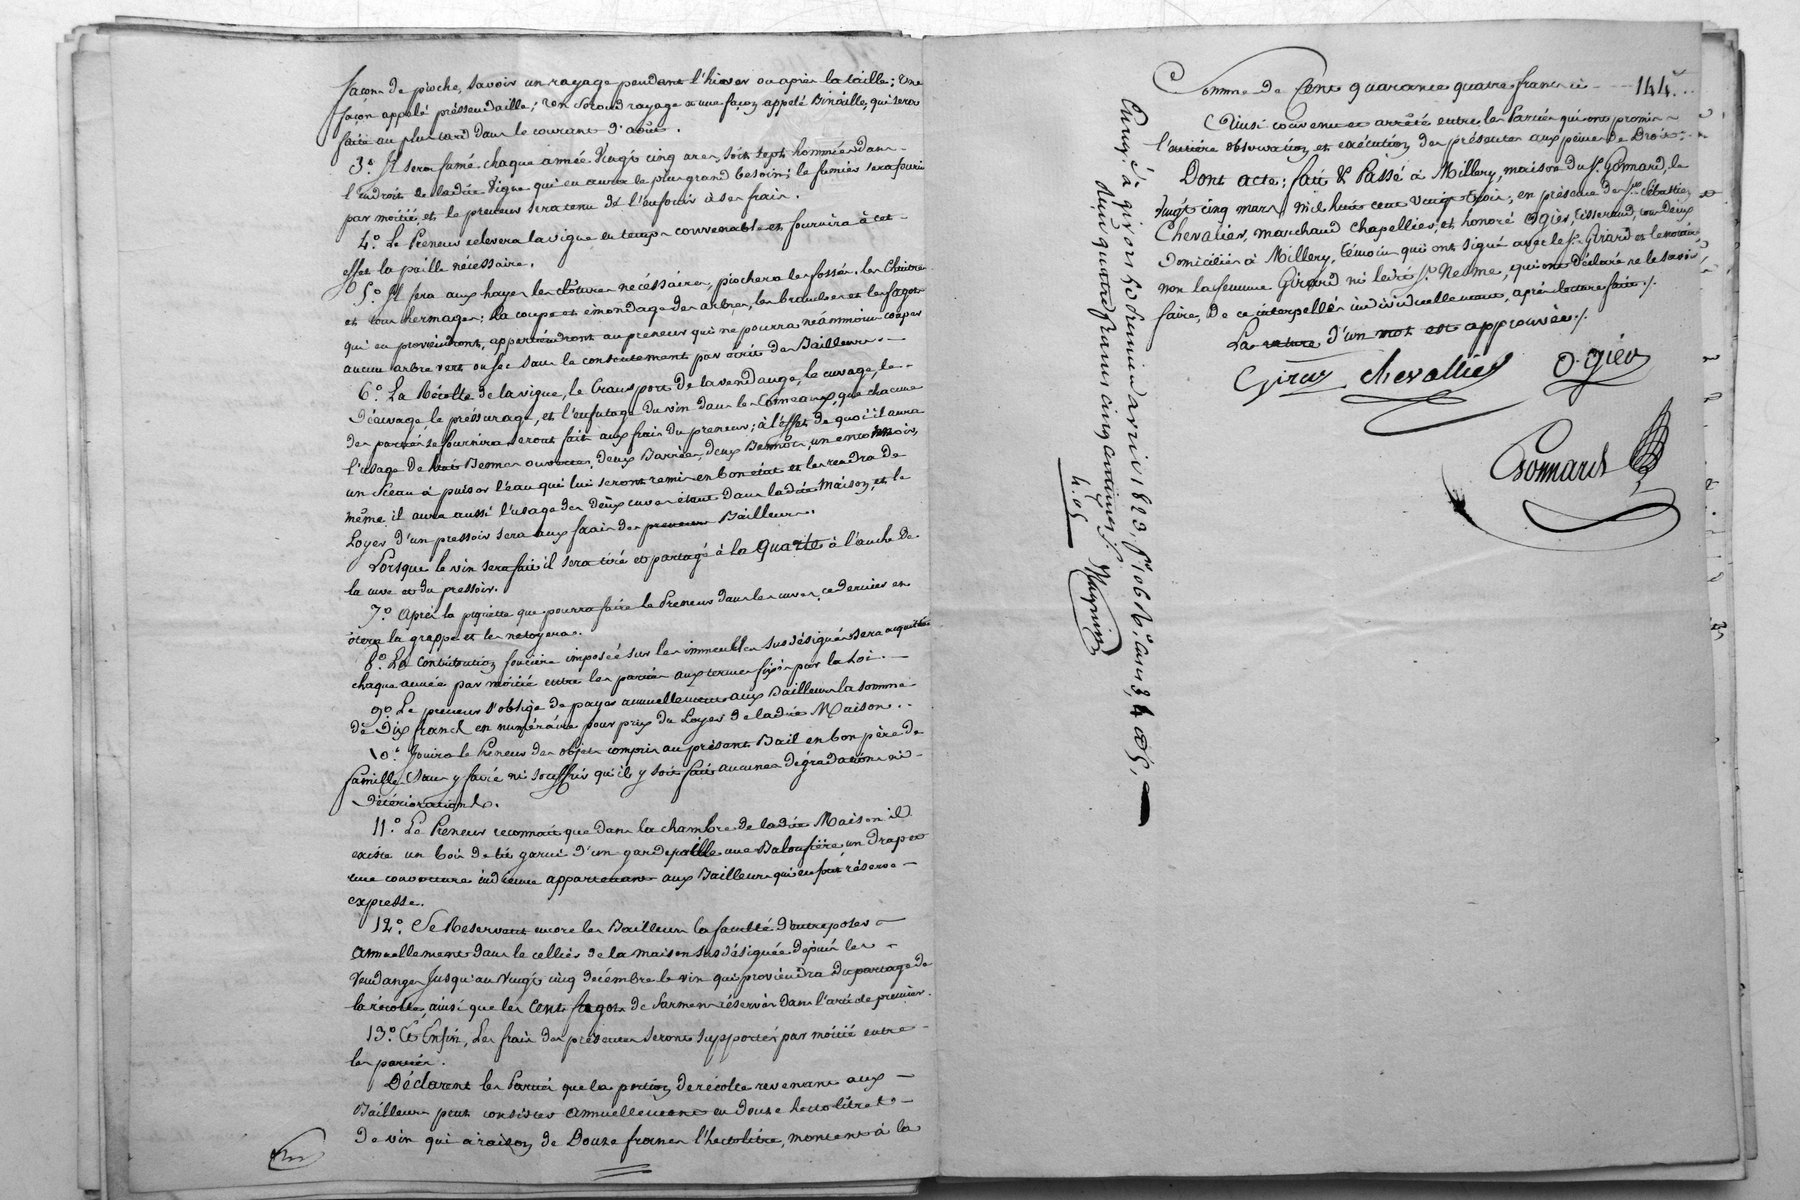 façons de pioche, savoir un rayage pendant l'hiver ou après la taille; une
façon appelé présseudaille; un second rayage et une façon appelé Binaille, qui sera
faite au plus tard dans le courant d'août.
3.° Il sera fumé chaque année Vingt cinq ares, soit sept hommées dans
l'endroit de ladite Vigne qui en aura le plus grand besoin; le fumier sera fourni
par moitié, et le preneur sera tenu de l'enfouir à ses frais.
4.° Le Preneur relevera la vigne en temps convenable et fournira à cet
effet la paille nécessaire.
5.° Il fera aux hayes les clôtures nécéssaires, piochera les fossés, les Chintres
et tous hermages; la coupe et émondage des arbres, les branches et les fagots
qui en proviendront, appartiendront au preneur qui ne pourra néanmoins couper
aucun arbre vert ou sec sans le consentement par écrit des Bailleurs.
6.° La Récolte de la vigne, le transport de la vendange, le cuvage, le
Décuvage le préssurage, et l'enfutage du vin dans les tonneaux que chacune
des parties se fournira seront fait aux frais du preneur; à l'effet de quoi il aura
l'usage de huit Bennes ouvertes, deux Barrées, deux Bennots, un entonnoir,
un Sceau à puiser l'eau qui lui seront remis en bon état et les rendra de
même il aura aussi l'usage des deux cuves étant dans ladite Maison, et le
Loyer d'un pressoir sera aux frais des preneurs Bailleurs.
Lorsque le vin sera fait il sera tiré et partagé à la Quarte à l'anche de
la cuve et du pressoir.
7.° Après la piquette que pourra faire le Preneur dans les cuves, ce dernier en
ôtera la grappe et les netoyera.
8.° La contribution foncière imposée sur les immeubles susdésignés sera acquittée
chaque année par moitié entre les parties aux termes fixés par la Loi.
9.° Le preneur s'oblige de payer annuellement aux Bailleurs la somme
de Dix francs en numéraire pour prix du Loyer de ladite Maison.
10.° Jouira le Preneur des objets compris au présent Bail en bon père de
famille Sans y faire ni souffrir qu'il y soit fait aucunes dégradations ni
détériorations.
11.° Le Preneur reconnait que dans la chambre de ladite Maison il
existe un bois de lit garni d'un gardepaille une Baloufière un drap et
une couverture indienne appartenant aux Bailleurs qui en font réserve
expresse.
12.° Se Reservent encore les Bailleurs la faculté d'entreposer
annuellement dans le cellier de la maison susdésignée dépuis les
Vendanges Jusqu'au Vingt cinq décembre le vin qui proviendra du partage de
la récolte, ainsi que les cent fagots de Sarmens réservés dans l'article premier.
13.° Et Enfin, Les frais des présentes seront supportés par moitié entre
les parties.
Déclarent les Parties que la portion de récolte revenant aux
Bailleurs peut consister annuellement en douze hectolitres
de vin qui à raison de Douze francs l'hectolitre, montent à la
Somme de Cent quarante quatre francs ci 144.
Ainsi convenu et arrêté entre les Parties qui ont promis
l'entière observation et exécution des présentes aux peines de Droit.
Dont acte; fait & Passé à Millery, maison du Sr Gonnard, le
vingt cinq mars mil huit cent vingt trois, en présence de Srs Sébastien
Chevalier, marchand chapellier, et honoré Ogier, tisserand, tous deux
domiciliés à Millery, témoins qui ont signé avec le Sr Girard et le notaire
non la femme Girard ni ledit Sr Nesme, qui ont déclaré ne le savoir
faire, de ce interpellés individuellement, après lecture faite./.
La rature d'un mot est approuvée./.
Girar chevallier Ogier
Gonnard
Enreg.é à givors le premier avril 1823, f.° 106 R.° cases 3, 4 et 5,
reçu quatre francs cinq centimes
4.05